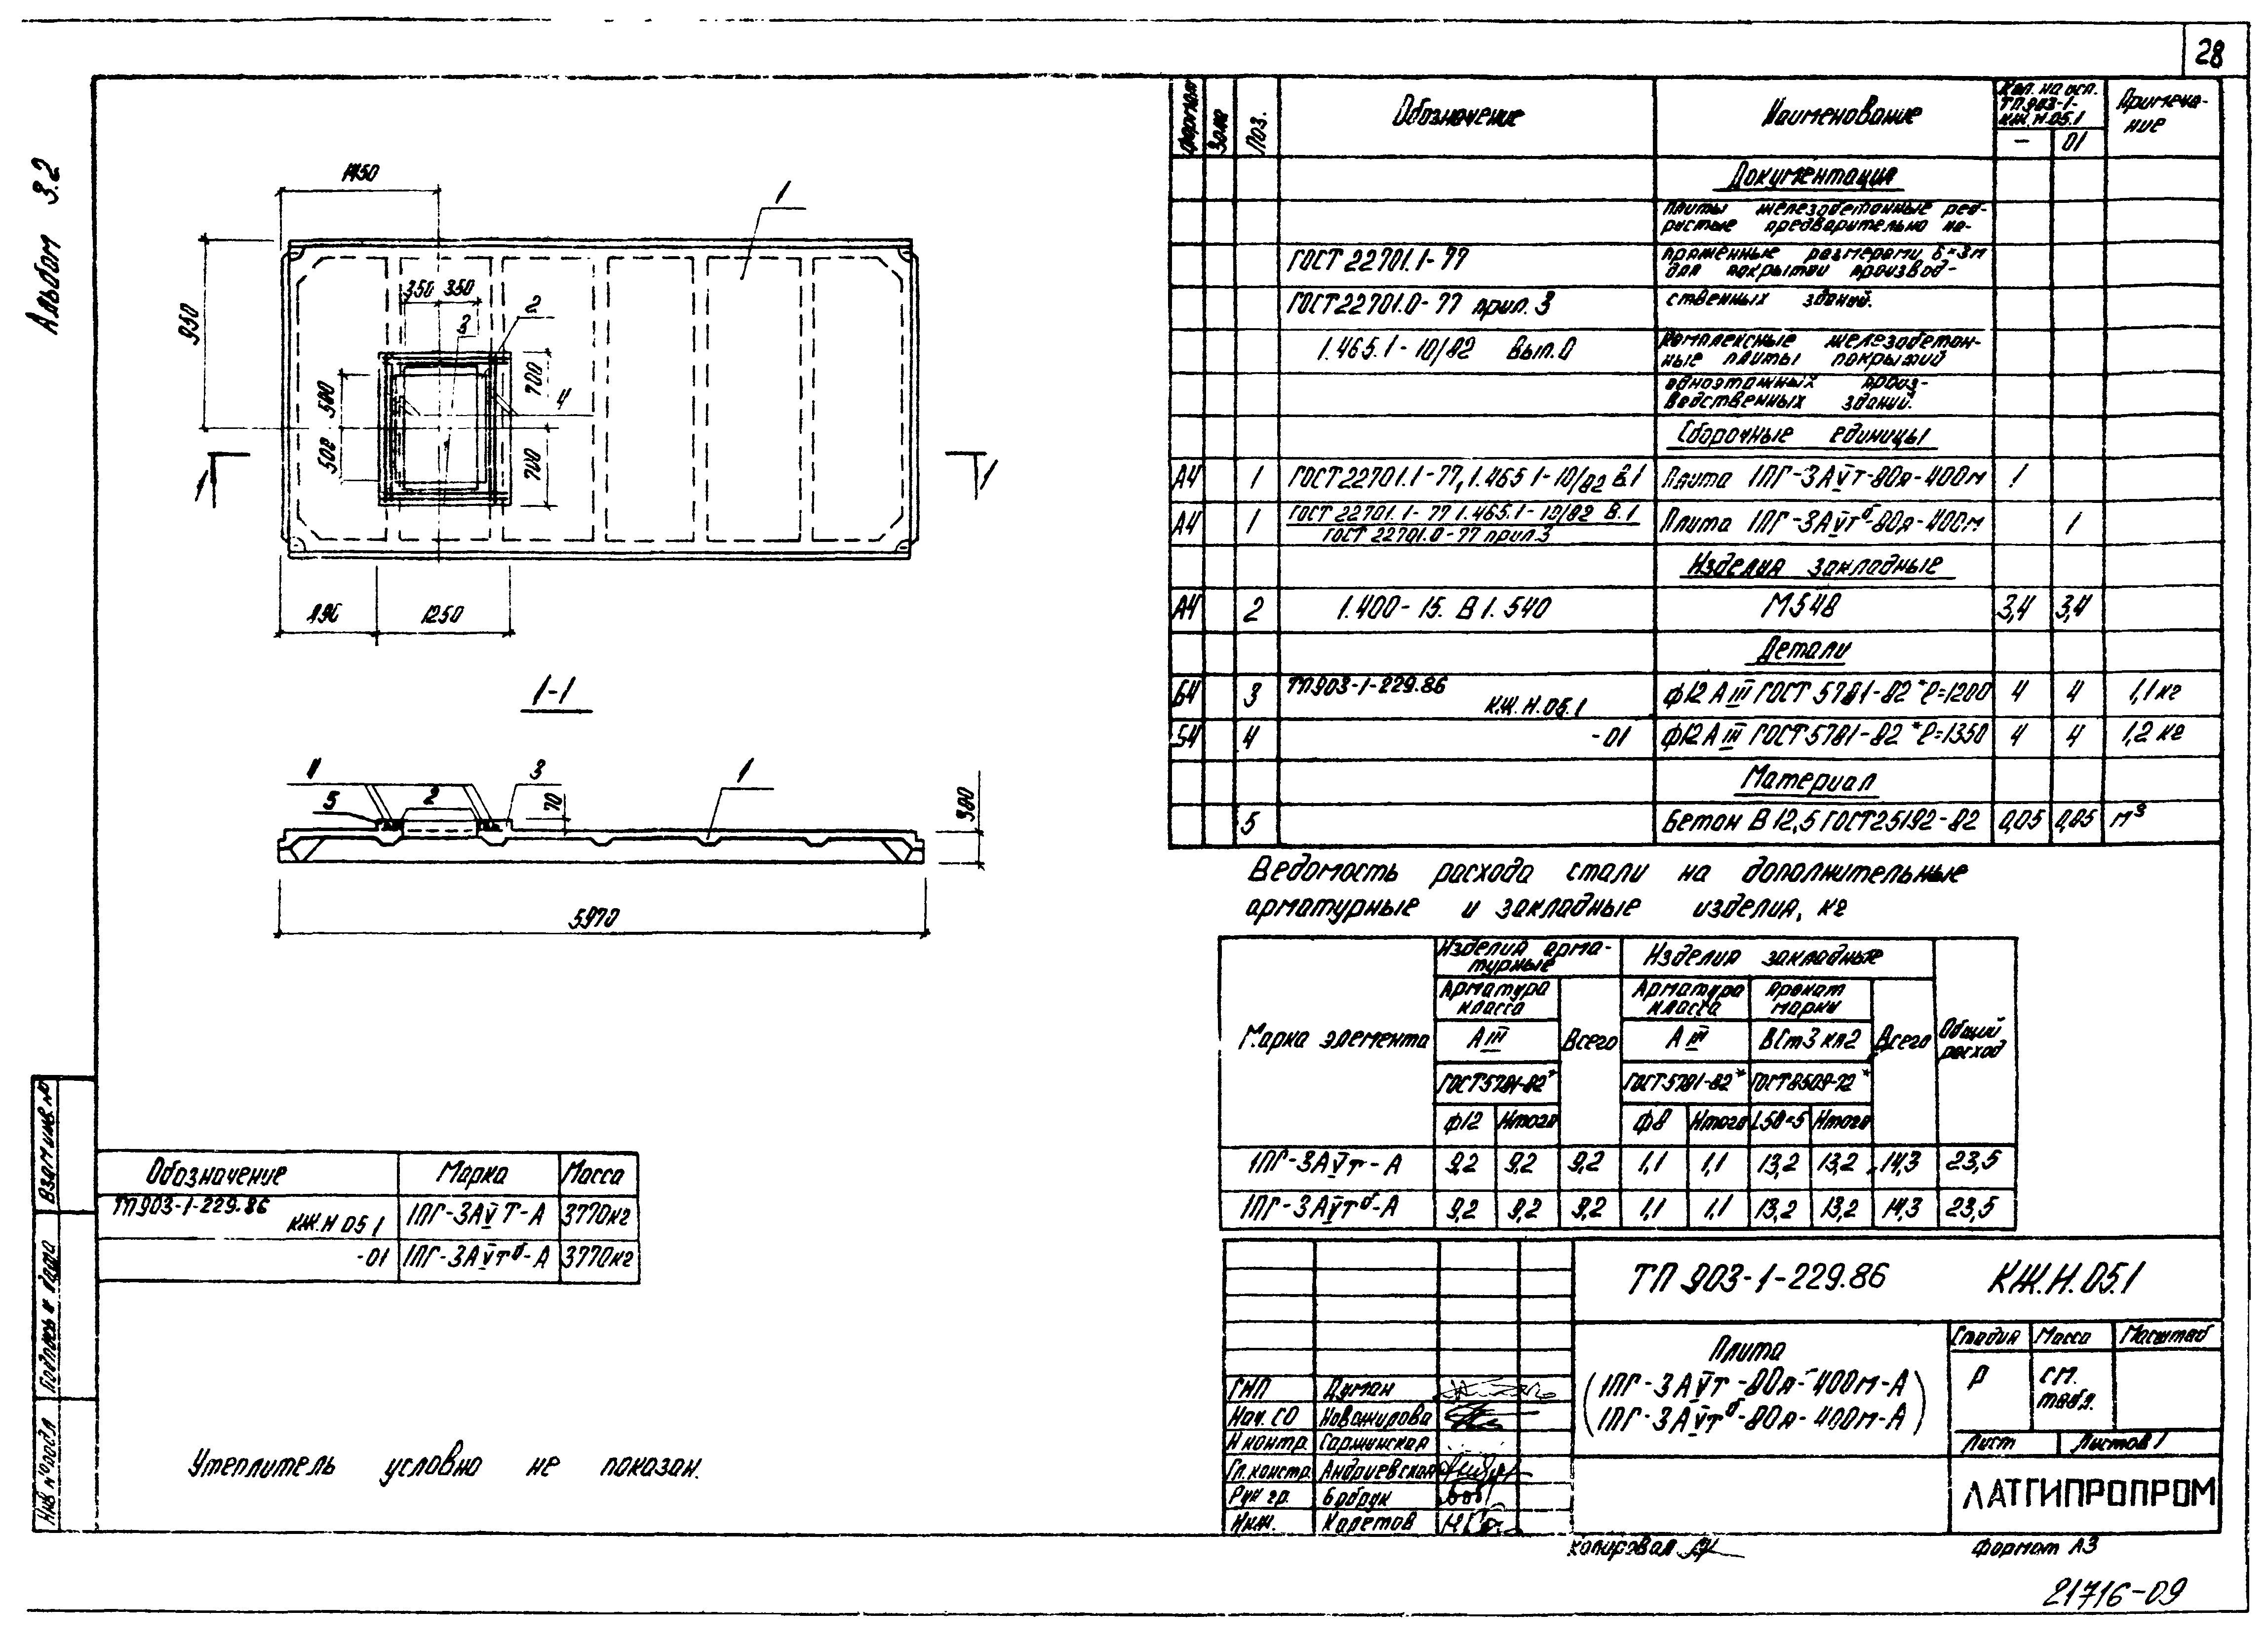 28
Альбом 3.2
1450
1
950
350 350
2
3
500
500
700
700
4
1
1
1250
1-1
5
2
3
70
1
300
5970
Формат
Зона
Поз.
Обозначение
Наименование
Кол. на исп.
ТП903-1-
КЖ.Н.05.1
Примеча-
ние
– 01
Документация
Плиты железобетонные реб-
ристые предварительно на-
ГОСТ 22701.1-77
пряженные размерами 6×3м
для покрытий производ-
ГОСТ 22701.0-77 прил. 3
ственных зданий.
1.465.1-10/82 Вып.0
Комплексные железобетон-
ные плиты покрытий
одноэтажных произ-
водственных зданий.
Сборочные единицы
А4 1 ГОСТ 22701.1-77, 1.465.1-10/82 В.1 Плита 1ПГ-3АѴт-80я-400м 1
А4 1 ГОСТ 22701.1-77 1.465.1-10/82 В.1 Плита 1ПГ-3АѴтб-80я-400м 1
ГОСТ 22701.0-77 прил.3
Изделия закладные
А4 2 1.400-15. В1. 540 М548 3,4 3,4
Детали
Б4 3 ТП903-1-229.86 КЖ.Н.05.1 ф12 АIII ГОСТ 5781-82* ℓ=1200 4 4 1,1кг
Б4 4 -01 ф12 АIII ГОСТ 5781-82* ℓ=1350 4 4 1,2 кг
Материал
5 Бетон В 12,5 ГОСТ25192-82 0,05 0,05 м³
Ведомость расхода стали на дополнительные
арматурные и закладные изделия, кг
Марка элемента
Изделия арма-
турные
Изделия закладные
Общий
расход
Арматура
класса
Всего
Арматура
класса
Прокат
марки
Всего
АIII
АIII
ВСт3 кп2
ГОСТ5781-82*
ГОСТ5781-82*
ГОСТ8509-72*
ф12 Итого ф8 Итого L50×5 Итого
1ПГ-3АѴт-А 9,2 9,2 9,2 1,1 1,1 13,2 13,2 14,3 23,5
1ПГ-3АѴтб-А 9,2 9,2 9,2 1,1 1,1 13,2 13,2 14,3 23,5
Обозначение Марка Масса
ТП903-1-229.86
КЖ.Н 05 1 1ПГ-3АѴТ-А 3770кг
-01 1ПГ-3АѴтб-А 3770кг
Утеплитель условно не показан.
Взам инв. №
Подпись и дата
Инв № подл
ТП 903-1-229.86 КЖ.Н.05.1
Плита
(1ПГ-3АѴт-80я-400м-А)
(1ПГ-3АѴтб-80я-400м-А)
Стадия Масса Масштаб
Р см.
табл.
Лист Листов 1
ЛАТГИПРОПРОМ
ГИП Думан
Нач. СО Новожирова
Н контр.
Гл. констр. Андриевская
Рук гр. Бобрук
Инж. Каретов
Копировал
Формат А3
21716-09